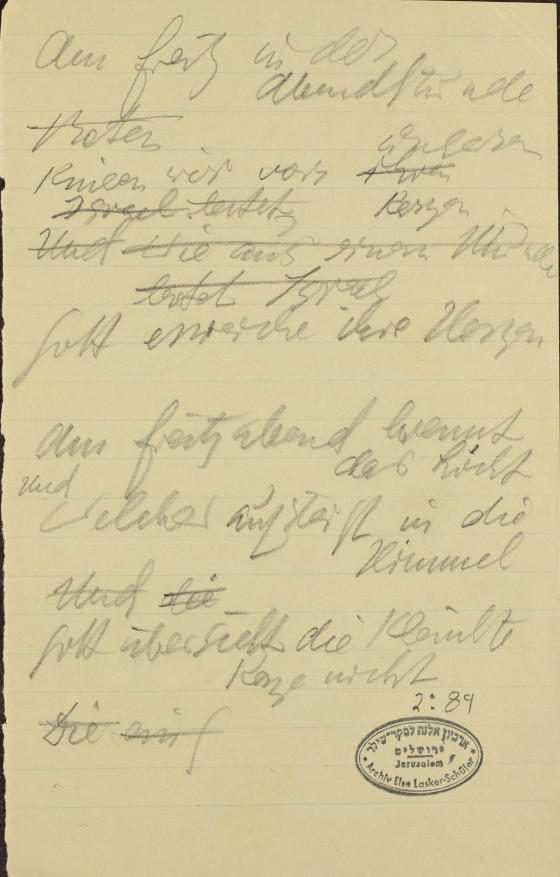 Am freitg in der
Abendstunde
Knieen wir vor unseren
Israel betet
Kerzen
Und wie aus einem Munde
betet Israel
Gott erweiche ihre Herzen
Am freitgabend brennt
das Licht
Und
Welches aufsteigt in die
Himmel
Und die
Gott übersieht die kleinste
Kerze nicht
Die
2:89
ארכיון אלזה לסקר-שילר
ירושלים
Jerusalem
Archiv Else Lasker-Schüler